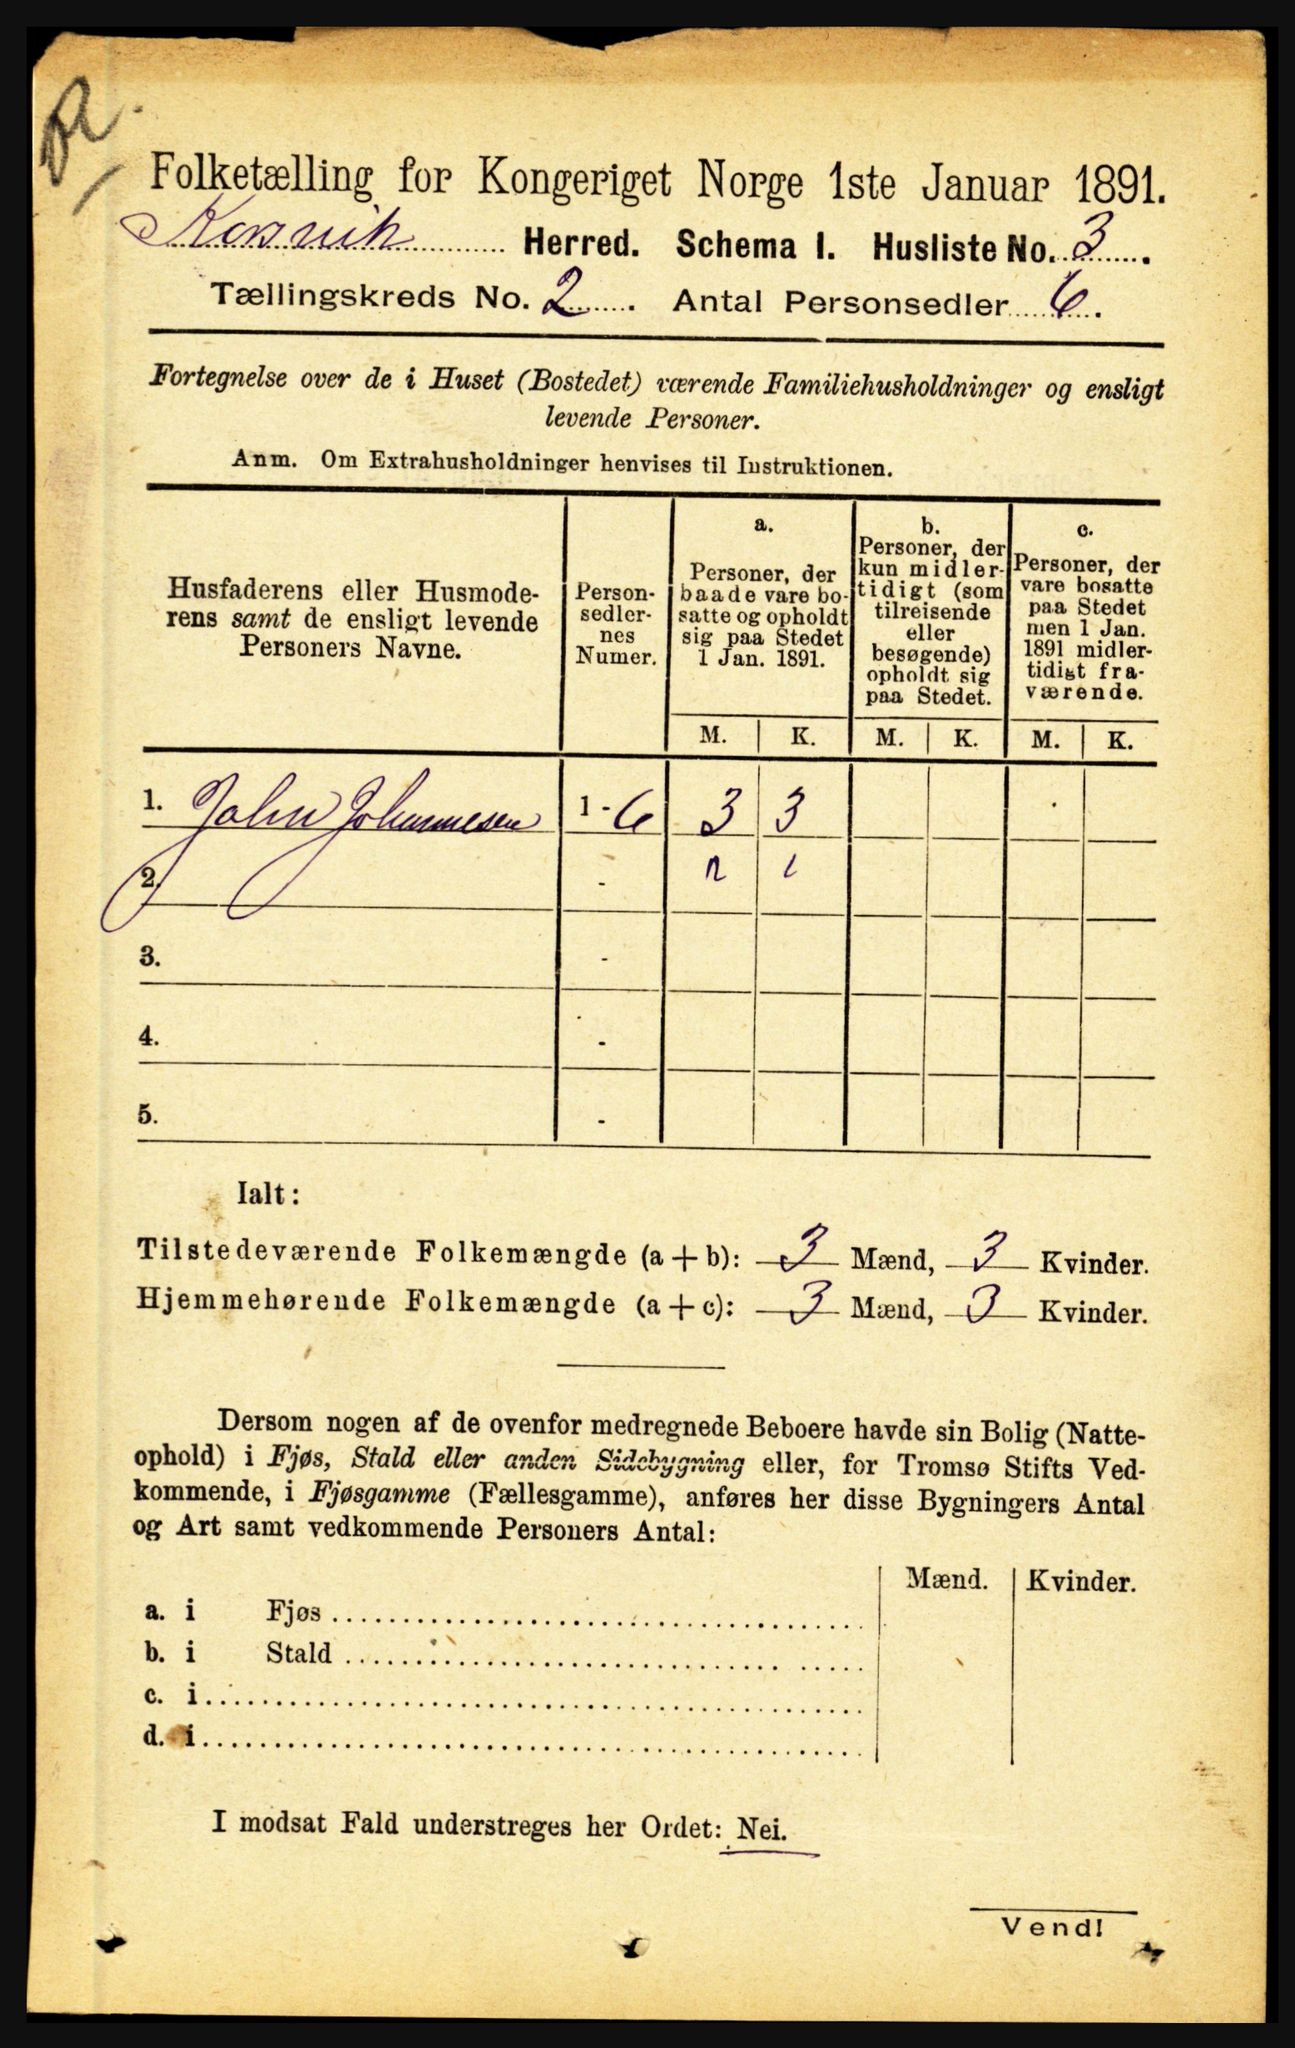 Folketælling for Kongeriget Norge 1ste Januar 1891.
Korsnik Herred. Schema I. Husliste No. 3.
Tællingskreds No. 2. Antal Personsedler 6.
Fortegnelse over de i Huset (Bostedet) værende Familiehusholdninger og ensligt
levende Personer.
Anm. Om Extrahusholdninger henvises til Instruktionen.
Husfaderens eller Husmode-
rens samt de ensligt levende
Personers Navne.
Person-
sedler-
nes
Numer.
a.
Personer, der
baade vare bo-
satte og opholdt
sig paa Stedet
1 Jan. 1891.
b.
Personer, der
kun midler-
tidigt (som
tilreisende
eller
besøgende)
opholdt sig
paa Stedet.
c.
Personer, der
vare bosatte
paa Stedet
men 1 Jan.
1891 midler-
tidigt fra-
værende.
M. K. M. K. M. K.
1. John Johannesen 1 - 6 3 3
2. - 2 1
3. -
4. -
5. -
Ialt:
Tilstedeværende Folkemængde (a + b): 3 Mænd, 3 Kvinder.
Hjemmehørende Folkemængde (a + c): 3 Mænd, 3 Kvinder.
Dersom nogen af de ovenfor medregnede Beboere havde sin Bolig (Natte-
ophold) i Fjøs, Stald eller anden Sidebygning eller, for Tromsø Stifts Ved-
kommende, i Fjøsgamme (Fællesgamme), anføres her disse Bygningers Antal
og Art samt vedkommende Personers Antal:
Mænd. Kvinder.
a. i Fjøs
b. i Stald
c. i
d. i
I modsat Fald understreges her Ordet: Nei.
Vend!